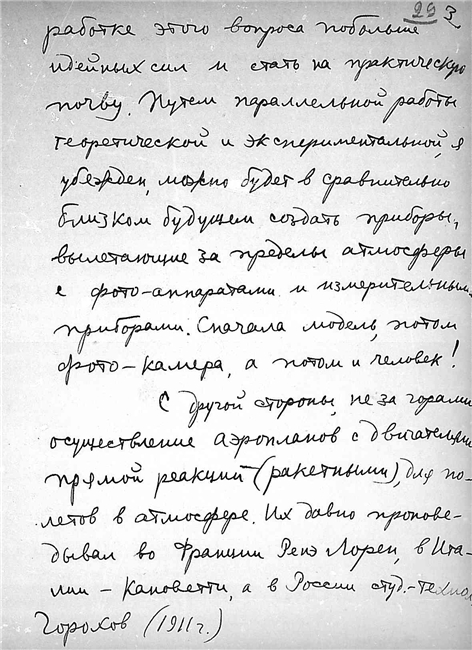 29 3
работке этого вопроса побольше
идейных сил и стать на практическую
почву. Путем параллельной работы
теоретической и экспериментальной, я
убежден, можно будет в сравнительно
близком будущем создать приборы,
вылетающие за пределы атмосферы
с фото-аппаратами и измерительными
приборами. Сначала модель, потом
фото-камера, а потом и человек!
С другой стороны, не за горами
осуществление аэропланов с двигателями
прямой реакции (ракетными), для по-
летов в атмосфере. Их давно пропове-
дывал во Франции Ренэ Лорен, в Ита-
лии - Кановетти, а в России студ.-технол
Горохов (1911 г.)